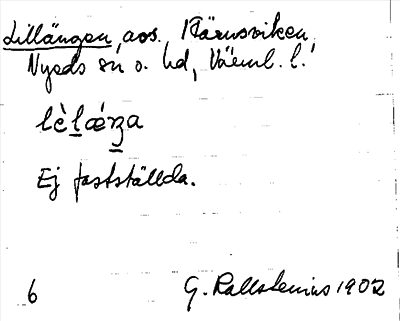 Lillängen, avs. Kärnsviken,
Nyeds sn o. hd, Värml. l.
lèlǽŋa
Ej fastställda.
6 G. Kallstenius 1902